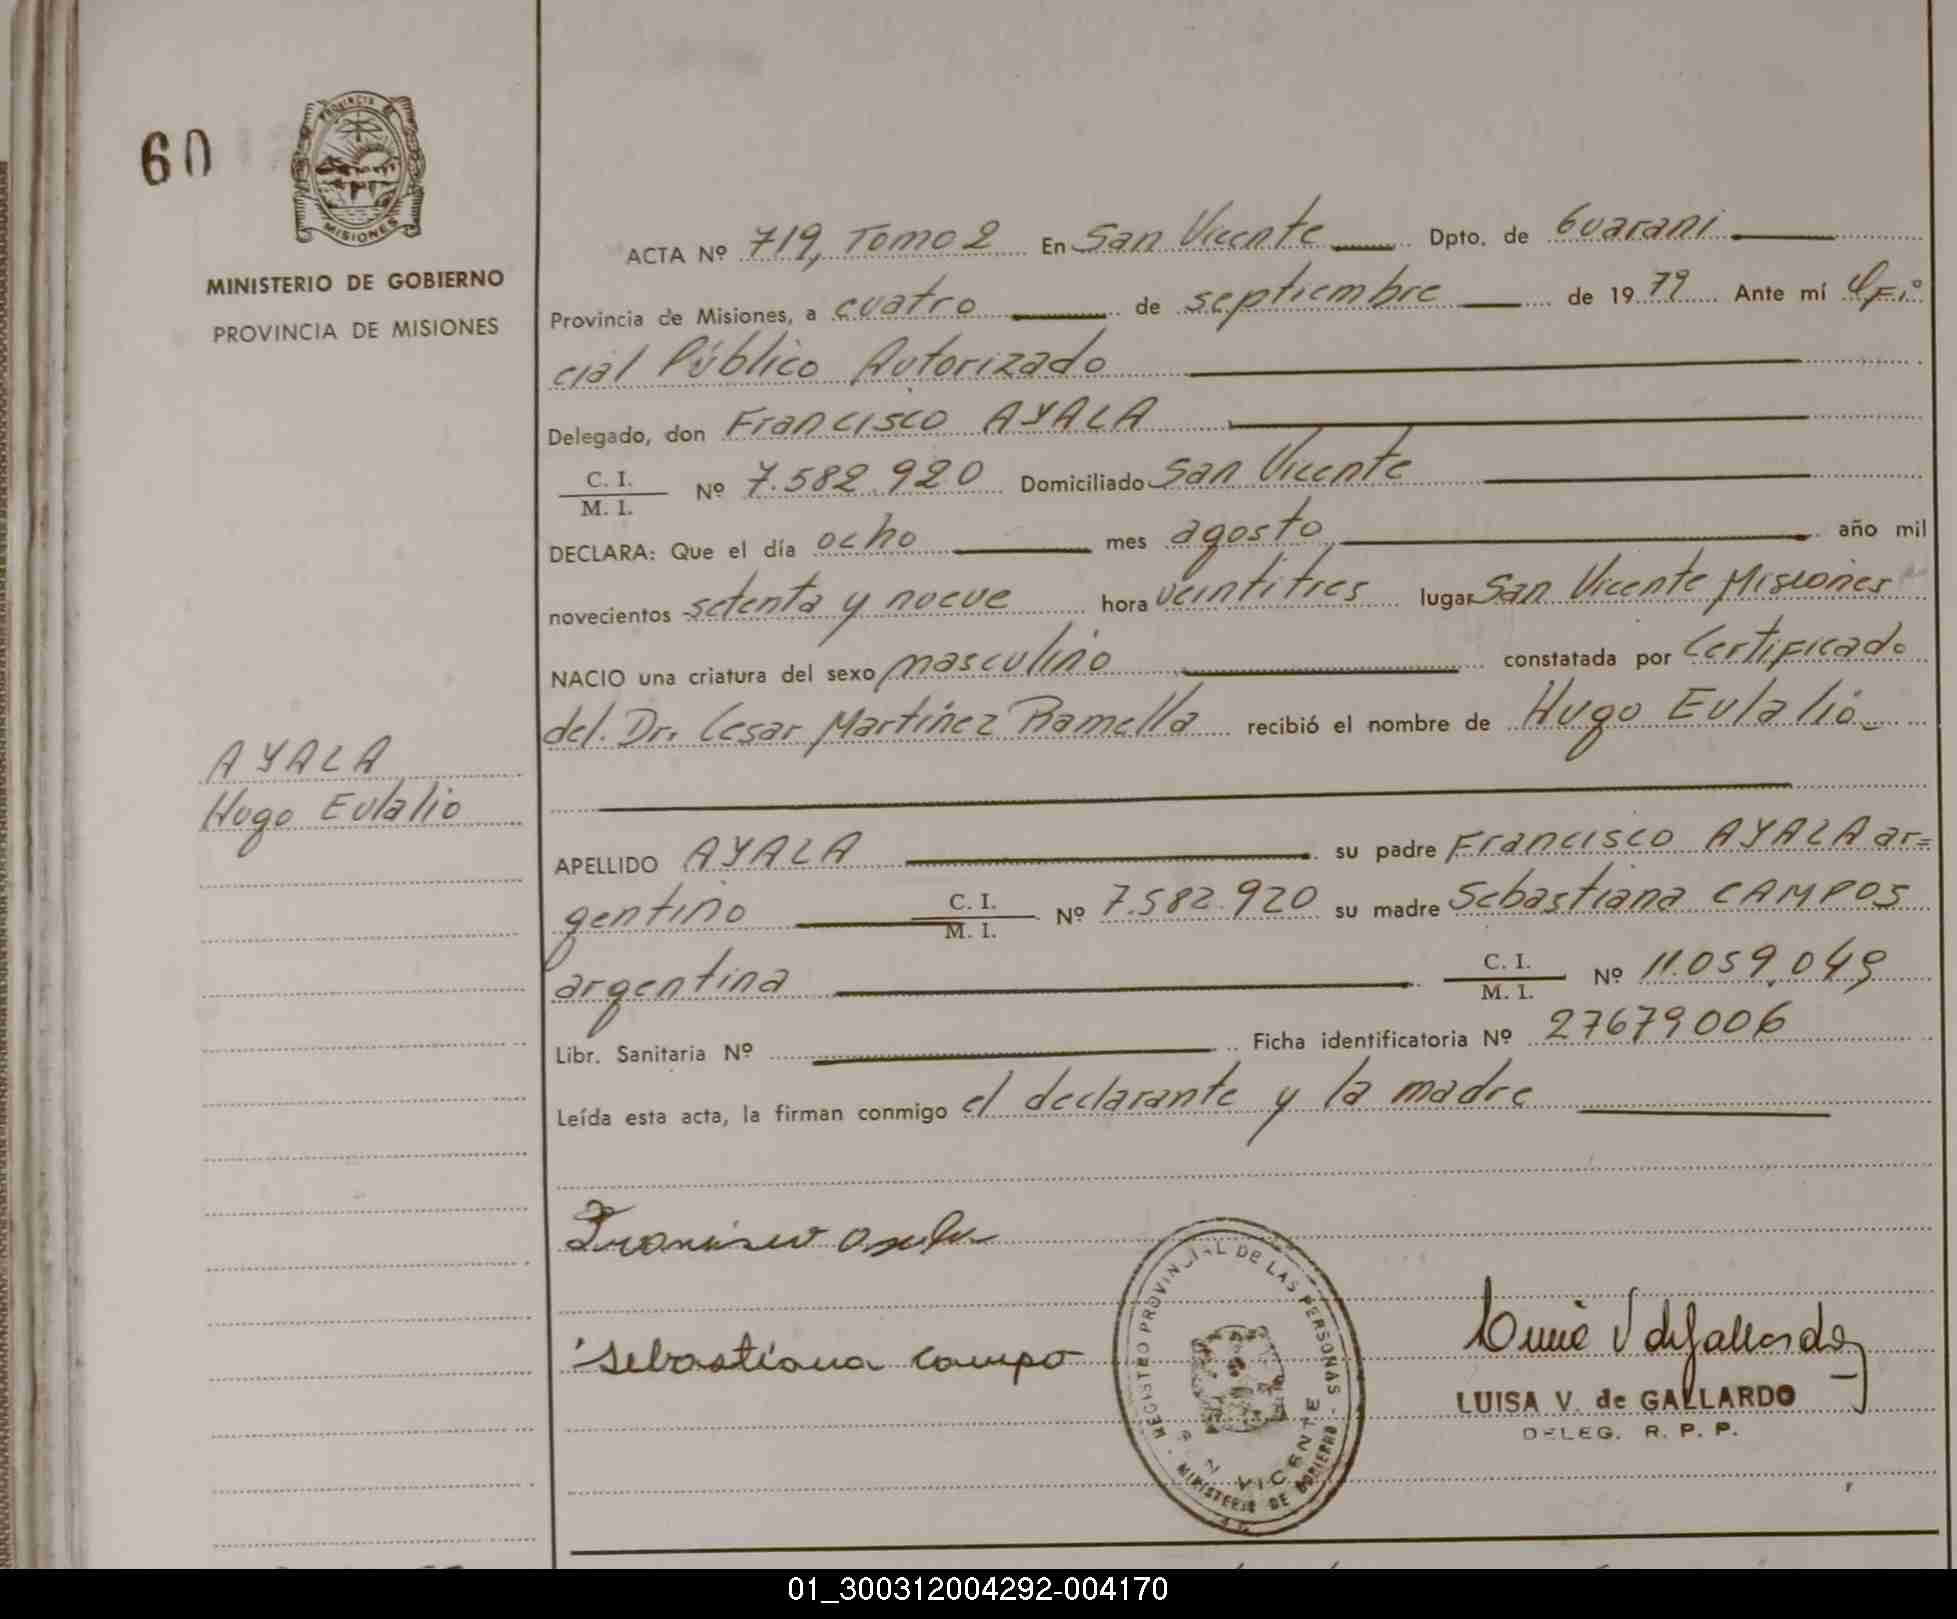 60
PROVINCIA DE
MISIONES
MINISTERIO DE GOBIERNO
PROVINCIA DE MISIONES
ACTA Nº 719, Tomo 2 En San Vicente Dpto. de Guarani
Provincia de Misiones, a cuatro de septiembre de 1979 Ante mí Ofi
cial Público Autorizado
Delegado, don Francisco AYALA
C. I.
M. I. Nº 7.582.920 Domiciliado San Vicente
DECLARA: Que el día ocho mes agosto año mil
novecientos setenta y nueve hora veintitres lugar San Vicente Misiones
NACIO una criatura del sexo masculino constatada por Certificado
del. Dr. Cesar Martinez Ramella recibió el nombre de Hugo Eulalio
AYALA
Hugo Eulalio
APELLIDO AYALA su padre Francisco AYALA ar=
gentino C. I.
M. I. Nº 7.582.920 su madre Sebastiana CAMPOS
argentina C. I.
M. I. Nº 11.059.049
Libr. Sanitaria Nº Ficha identificatoria Nº 27679006
Leída esta acta, la firman conmigo el declarante y la madre
Francisco
Sebastiana Campo
REGISTRO PROVINCIAL DE LAS PERSONAS
SAN VICENTE
MINISTERIO DE GOBIERNO
V de Gallardo
LUISA V. de GALLARDO
DELEG. R. P. P.
01_300312004292-004170